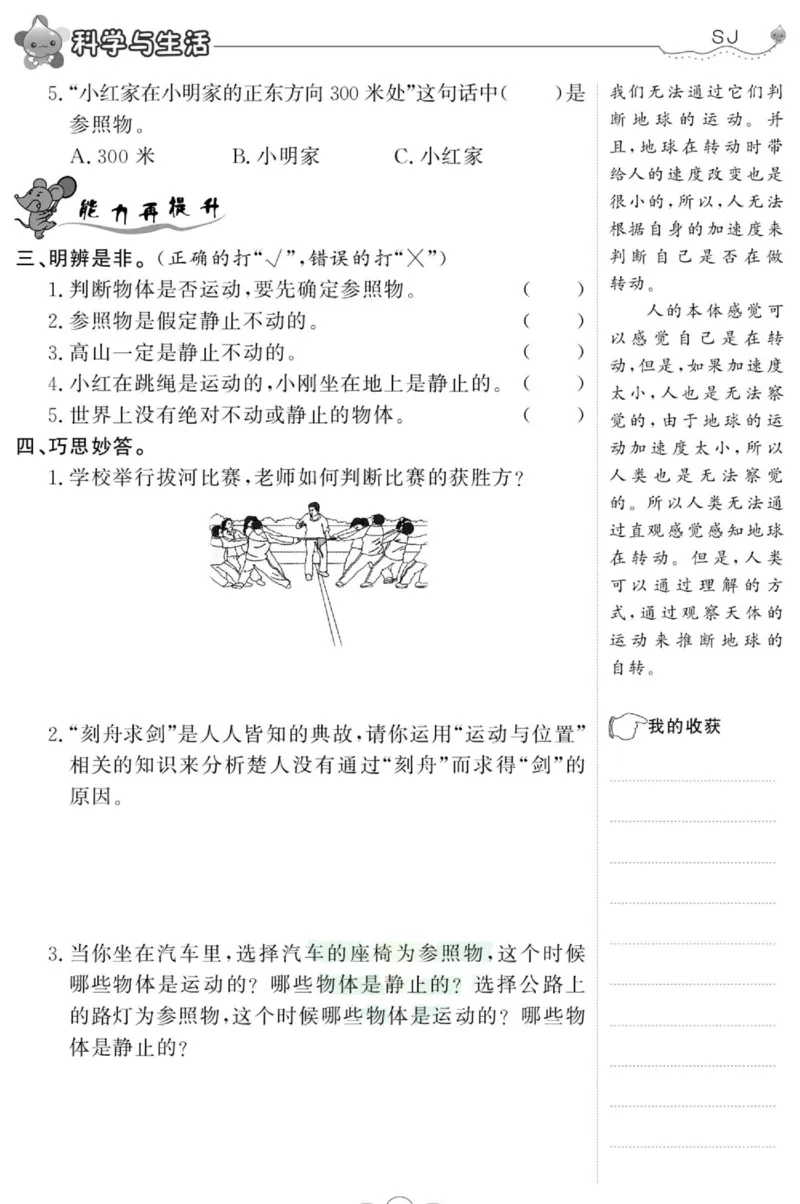 科学与生活
SJ
5.“小红家在小明家的正东方向 300 米处”这句话中(　　)是
参照物。
A. 300 米　B. 小明家　C. 小红家
能力再提升
三、明辨是非。(正确的打“√”,错误的打“×”)
1. 判断物体是否运动,要先确定参照物。(　　)
2. 参照物是假定静止不动的。(　　)
3. 高山一定是静止不动的。(　　)
4. 小红在跳绳是运动的,小刚坐在地上是静止的。(　　)
5. 世界上没有绝对不动或静止的物体。(　　)
四、巧思妙答。
1. 学校举行拔河比赛,老师如何判断比赛的获胜方?
2.“刻舟求剑”是人人皆知的典故,请你运用“运动与位置”
相关的知识来分析楚人没有通过“刻舟”而求得“剑”的
原因。
3. 当你坐在汽车里,选择汽车的座椅为参照物,这个时候
哪些物体是运动的? 哪些物体是静止的? 选择公路上
的路灯为参照物,这个时候哪些物体是运动的? 哪些物
体是静止的?
我们无法通过它们判
断地球的运动。并
且,地球在转动时带
给人的速度改变也是
很小的,所以,人无法
根据自身的加速度来
判断自己是否在做
转动。
人的本体感觉可
以感觉自己是在转
动,但是,如果加速度
太小,人也是无法察
觉的,由于地球的运
动加速度太小,所以
人类也是无法察觉
的。所以人类无法通
过直观感觉感知地球
在转动。但是,人类
可以通过理解的方
式,通过观察天体的
运动来推断地球的
自转。
我的收获